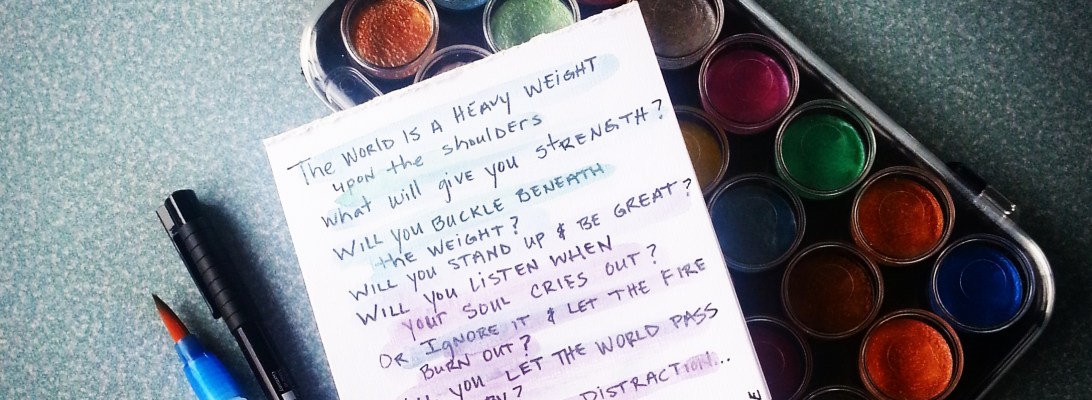 The WORLD IS A HEAVY WEIGHT
upon the shoulders
what will give you STRENGTH?
WILL YOU BUCKLE BENEATH
the WEIGHT?
WILL YOU STAND UP & BE GREAT?
WILL YOU LISTEN WHEN
YOUR SOUL CRIES OUT?
OR IGNORE IT & LET THE FIRE
BURN OUT?
YOU LET THE WORLD PASS
BY?
DISTRACTION...